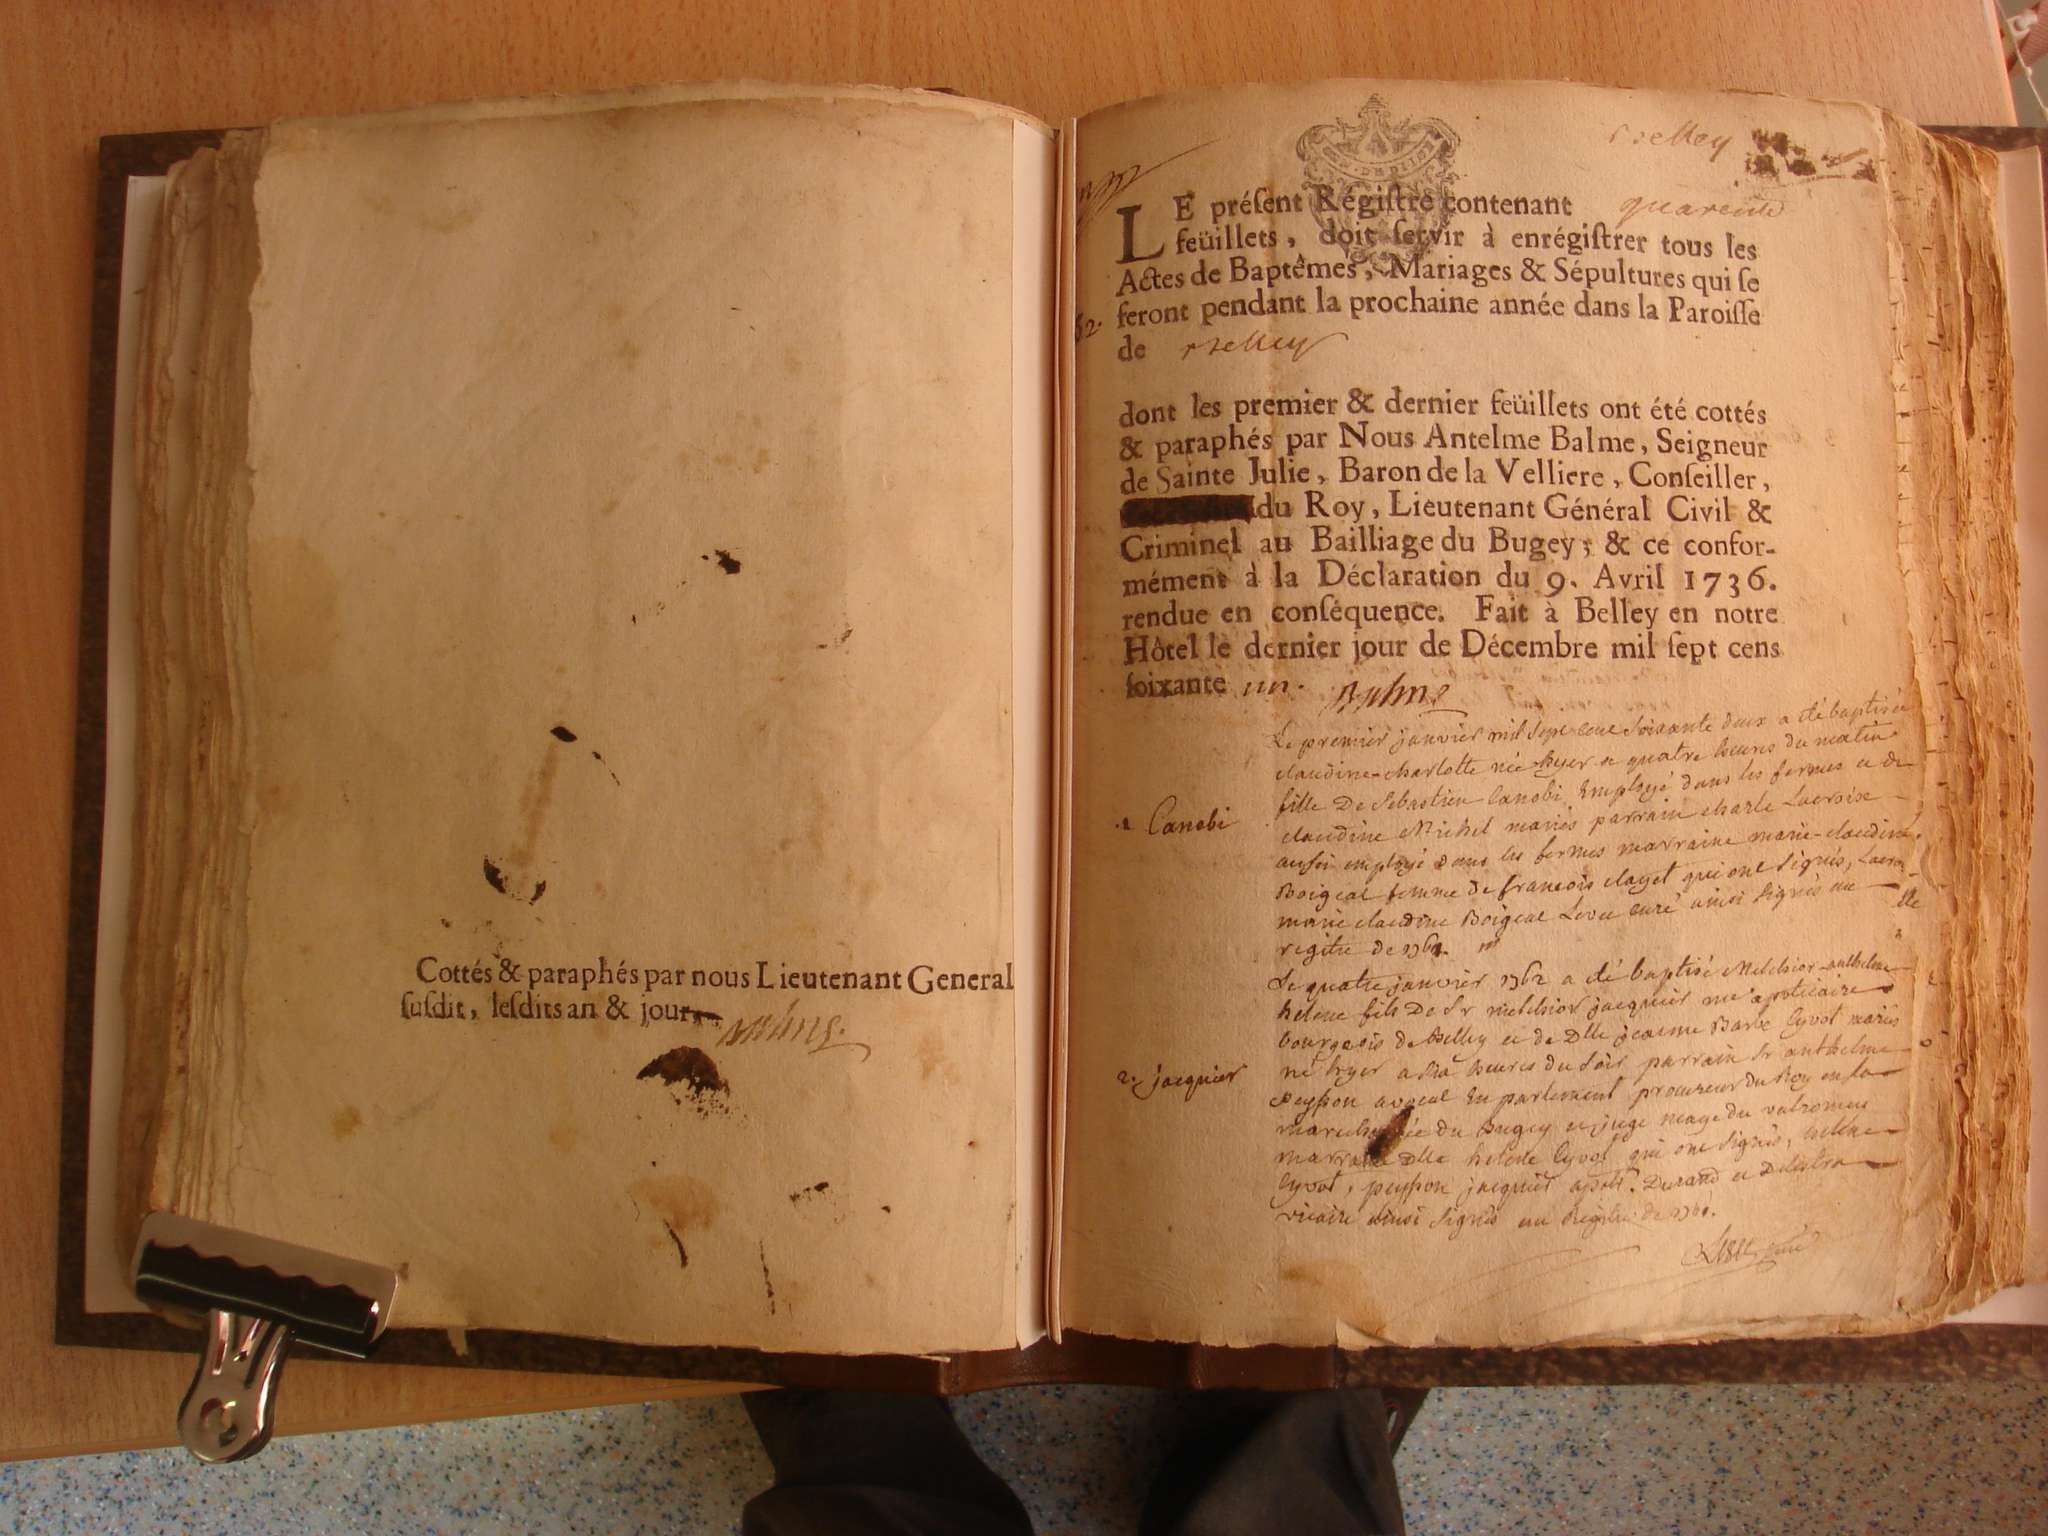 Cottés & paraphés par nous Lieutenant General
susdit, lesdits an & jour
Belley
LE présent Régistre contenant quarente
feüillets, doit servir à enrégistrer tous les
Actes de Baptêmes, Mariages & Sépultures qui se
feront pendant la prochaine année dans la Paroisse
de Belley
dont les premier & dernier feüillets ont été cottés
& paraphés par Nous Antelme Balme, Seigneur
de Sainte Julie, Baron de la Velliere, Conseiller,
du Roy, Lieutenant Général Civil &
Criminel au Bailliage du Bugey; & ce confor-
mément à la Déclaration du 9. Avril 1736.
rendue en conséquence. Fait à Belley en notre
Hôtel le dernier jour de Décembre mil sept cens
soixante un. Balme
Le premier janvier mil sept cent soixante deux a été baptisée
claudine-charlotte née hyer a quatre heures du matin
fille De Sebastien Canobi Employé dans les fermes et de
1 Canobi
claudine Michel mariés parrain charle Lacroix
aussi employé dans les fermes marraine marie-claudine
Boigeat femme de francois clayet qui ont signés, Lacroix
marie claudine Boigeat curé ainsi signés au
regitre de 1761.
Le quatre janvier 1762 a été baptisé Melchior-anthelme
helene fils De Sr melchior jacquier me apoticaire
bourgeois de Belley et de Dlle jeanne Barbe Cyvot mariés
2. jacquier
né hyer a heures du soir parrain Sr anthelme
peysson avocat En parlement procureur du Roy en la
marechaussée du Bugey et juge mage du valromey
marraine Dlle helene Cyvot qui ont signés, helene
Cyvot, peysson jacquier apot. Durand et
vicaire ainsi signés au Regitre de 1761.